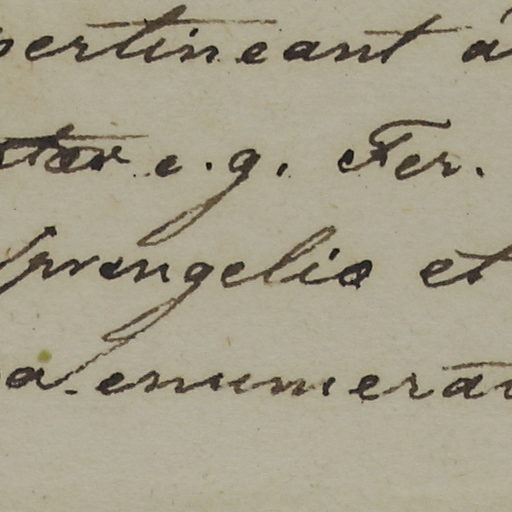 pertineant á
e.g. Fer.
Sprengelio et
a enumerav